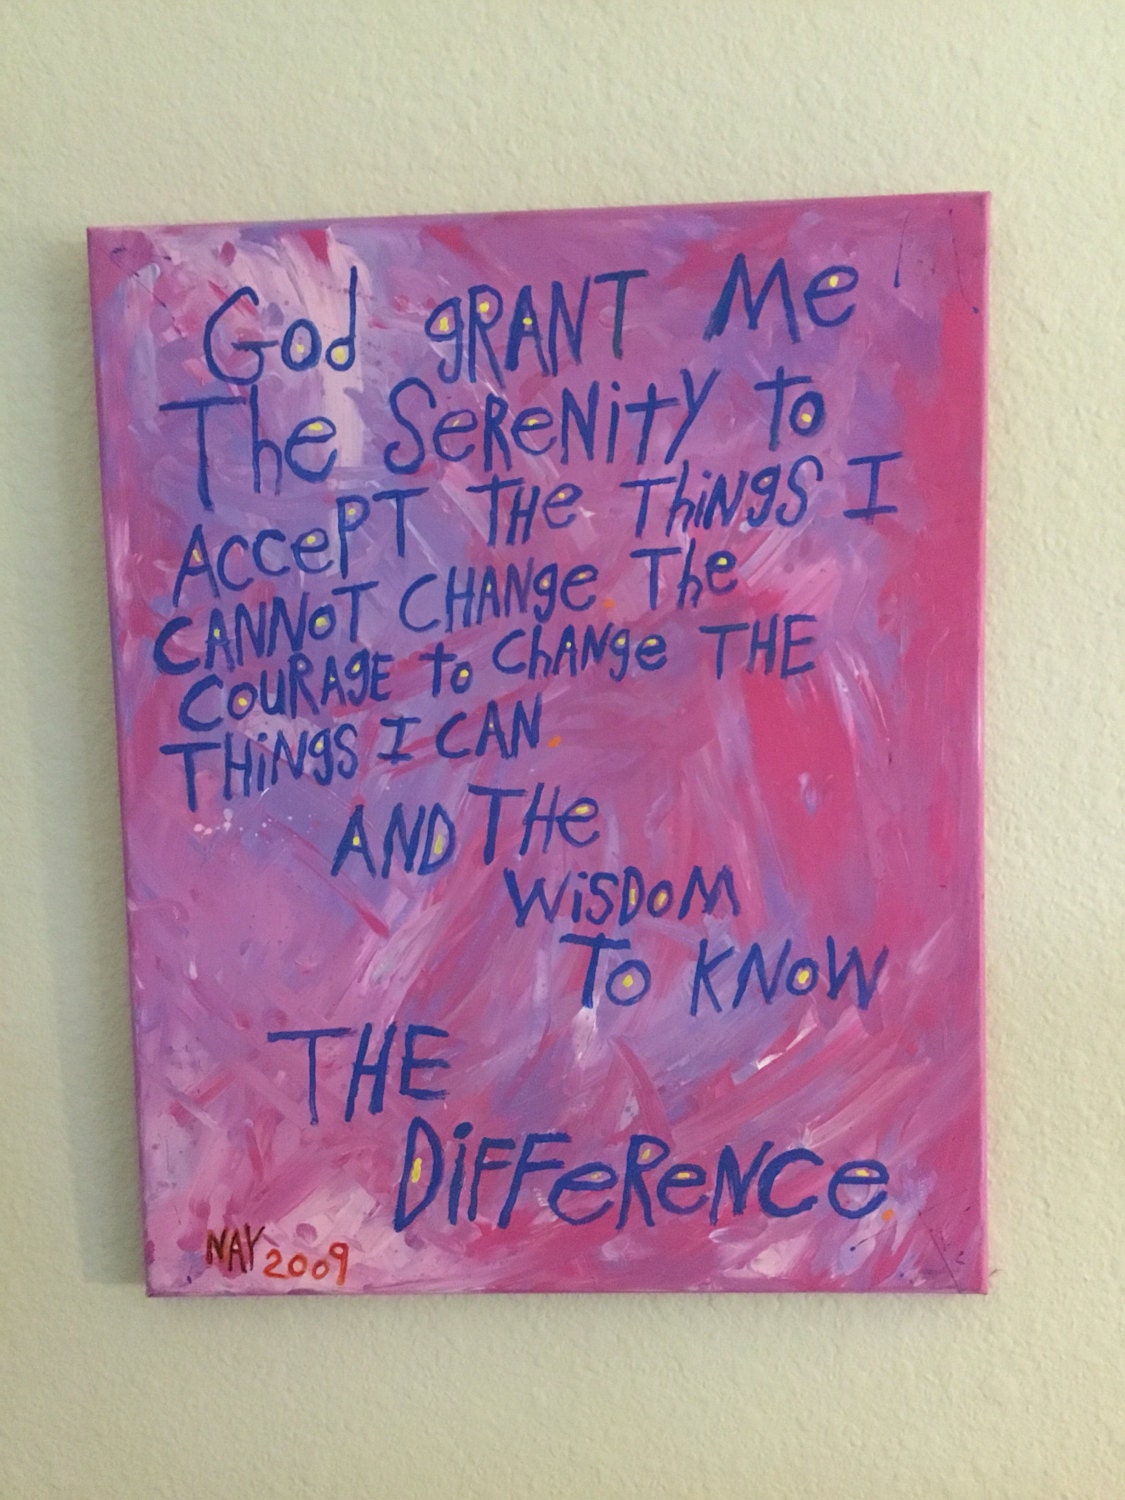 God gRANT Me
The SeReNiTY to
AccePT THe ThiNgS I
CANNoT CHANge. The
COURAgE to ChANge THE
THiNgS I CAN.
AND THe
WiSDoM
To KNoW
THE
DiFFeReNCe.
NAY 2009